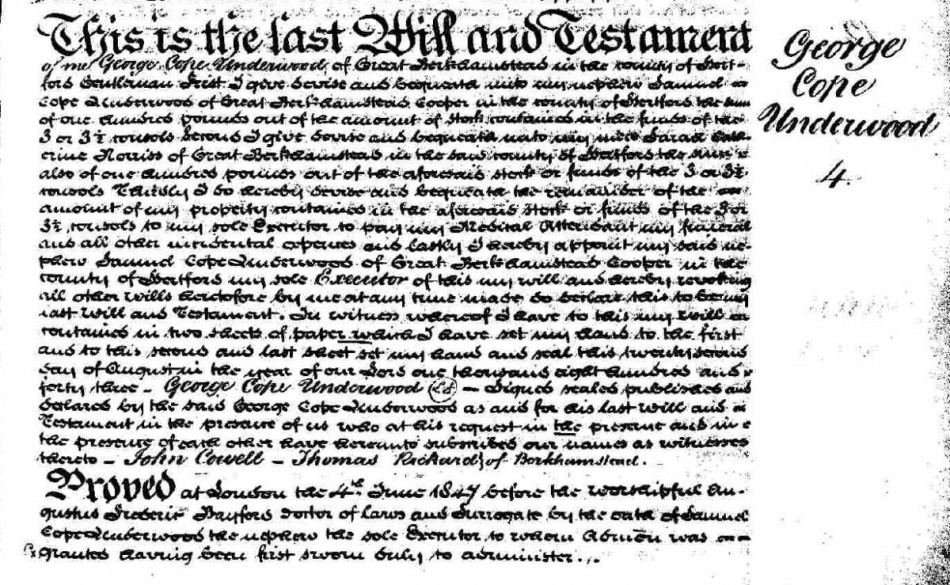 This is the last Will and Testament
of me George Cope Underwood of Great Berkhamstead in the county of Hert-
ford Gentleman First I give devise and bequeath unto my nephew Samuel
Cope Underwood of Great Berkhamstead Cooper in the county of Hertford the sum
of one hundred pounds out of the amount of stock contained in the funds of the
3 or 3½ consols Second I give devise and bequeath unto my niece Sarah Cath-
erine Norriss of Great Berkhamstead in the said county of Hertford the sum
also of one hundred pounds out of the aforesaid stock or funds of the 3 or 3½
consols Thirdly I do hereby devise and bequeath the remainder of the
amount of my property contained in the aforesaid stock or funds of the 3 or
3½ consols to my sole Executor to pay my Medical Attendant my funeral
and all other incidental expenses and lastly I hereby appoint my said ne-
phew Samuel Cope Underwood of Great Berkhamstead Cooper in the
county of Hertford my sole Executor of this my will and hereby revoking
all other wills heretofore by me at any time made do declare this to be my
last will and Testament. In witness whereof I have to this my will
contained in two sheets of paper which I have set my hand to the first
and to this second and last sheet set my hand and seal this twenty second
day of August in the year of our Lord one thousand eight hundred and
forty three – George Cope Underwood (LS) – Signed sealed published and
declared by the said George Cope Underwood as and for his last will and
Testament in the presence of us who at his request in the presence and in
the presence of each other have hereunto subscribed our names as witnesses
thereto – John Cowell – Thomas Rickard} of Berkhamstead.
Proved at London the 4th June 1847 before the worshipful Au-
gustus Frederic Bayford doctor of laws and Surrogate by the oath of Samuel
Cope Underwood the nephew the sole Executor to whom Admon was
granted having been first sworn duly to administer...
George
Cope
Underwood
4.